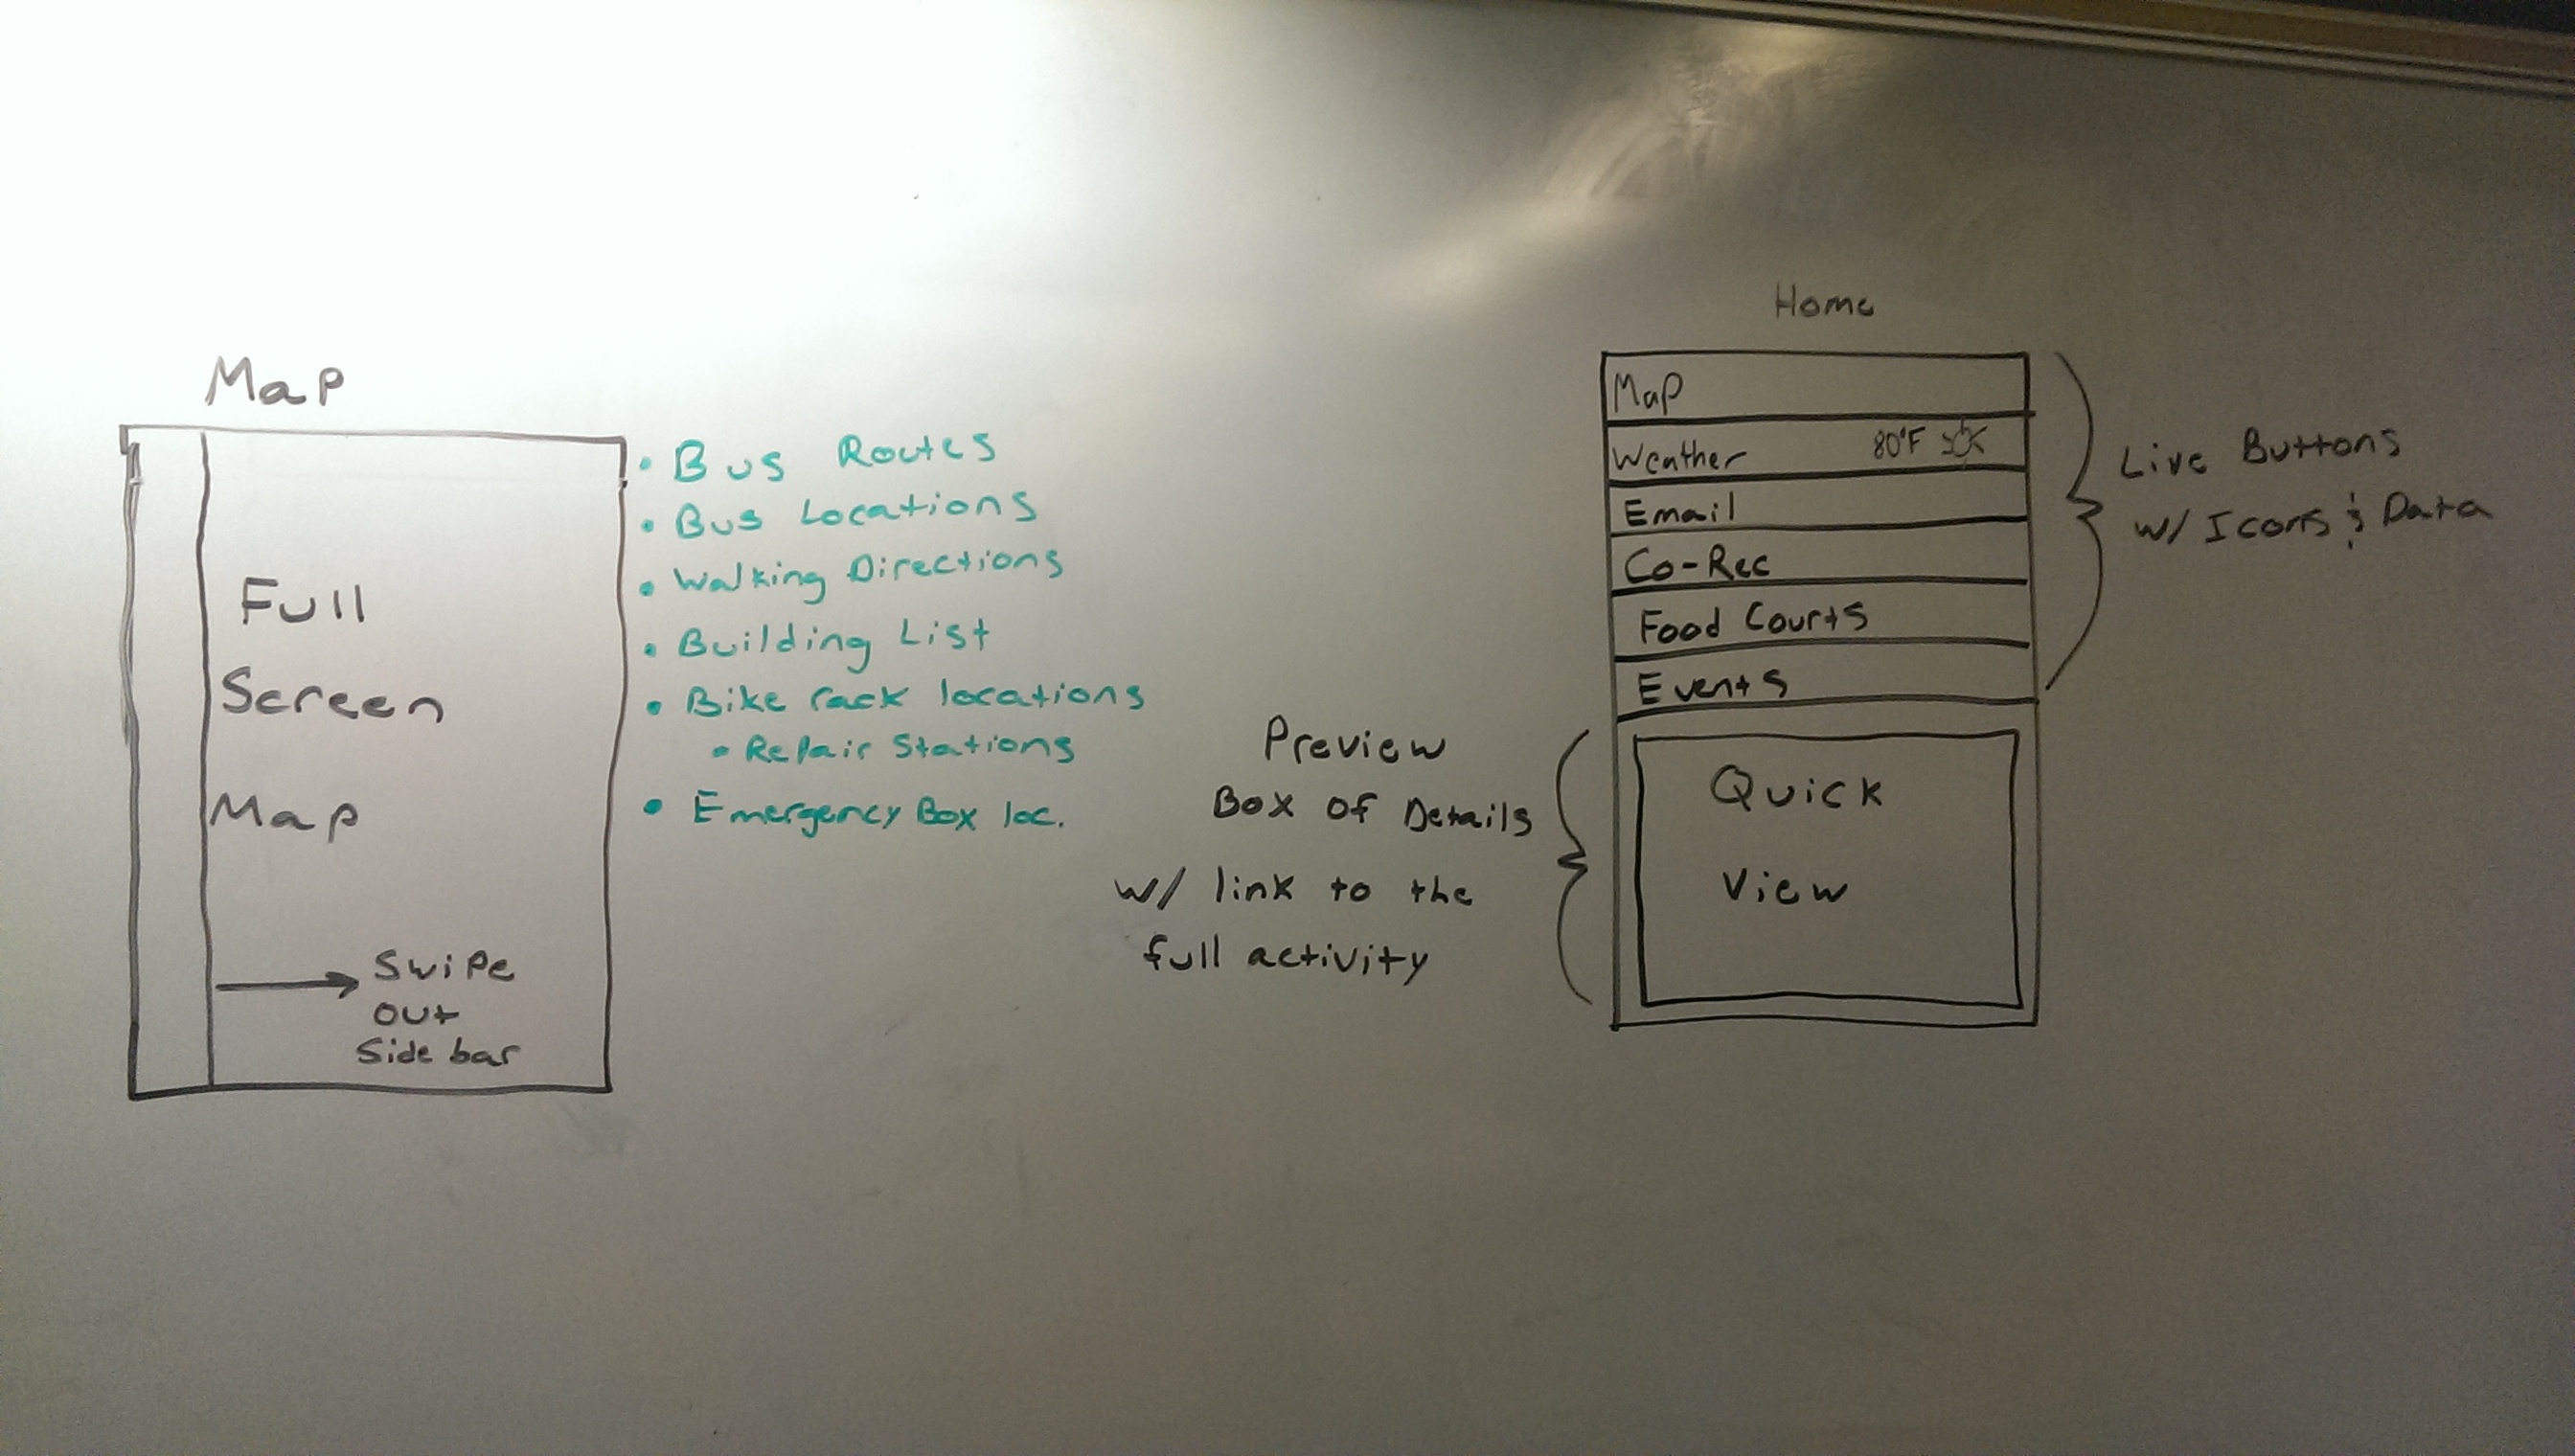 Map
Full
Screen
Map
Swipe
out
Side bar
• Bus Routes
• Bus Locations
• Walking Directions
• Building List
• Bike rack locations
• Repair Stations
• Emergency Box loc.
Home
Map
Weather 80°F
Email
Co-Rec
Food Courts
Events
Quick
View
Live Buttons
w/ Icons & Data
Preview
Box of Details
w/ link to the
full activity